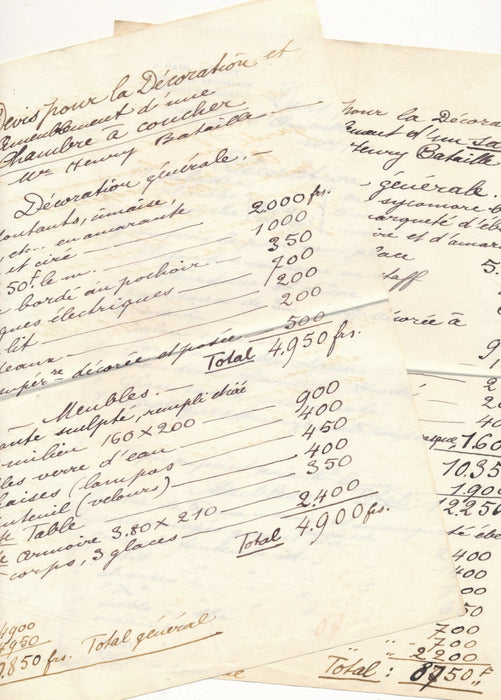 Devis pour la Décoration et
Ameublement d'une
Chambre à coucher
Mr Henry Bataille
Décoration générale. —
montants, cimaise,
etc... en amarante
et ciré — 2.000 frs.
50f. le m. — 1000
bordé au pochoir — 350
ques électriques — 700
lit — 200
deaux — 200
décorée et posée 500
Total 4.950 frs.
— Meubles. —
ante sculpté, rempli ciré
milieu 160 x 200 — 900
les verre d'eau — 400
haises (lampas) — 450
uteuil (velours) — 400
Table — 350
armoire 3.80 x 210 —
corps, 3 glaces — 2.400
Total 4.900 frs.
4900
4950
9.850 frs. Total général
pour la Décora
ement d'un Sa
Henry Bataille
générale.
sycomore
arqueté d'é
ire et d'amar
lace 5.
staff
décorée à
9
2
2
40
1.60
10.35
1.90
12250
té ébe
400
400
00
50
700
700
2.200
Total : 8750 "